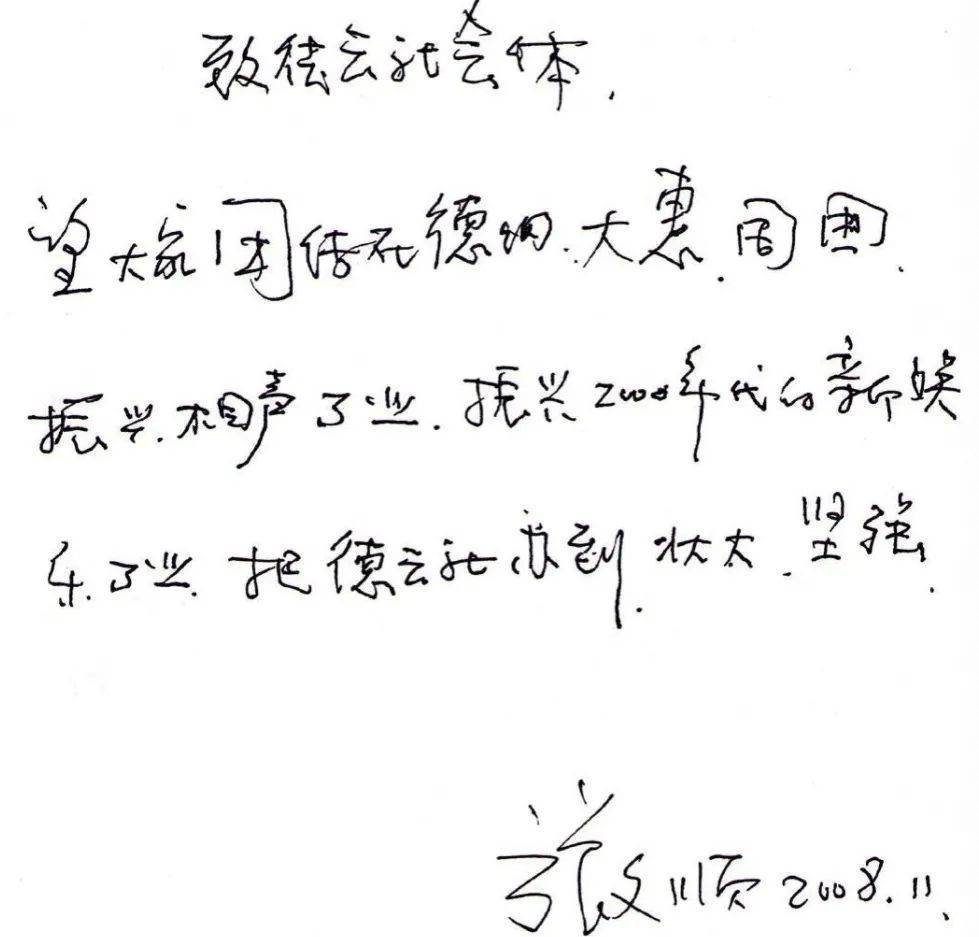 致德云社全体.
望大家团结在德纲.大惠.周围.
振兴.相声事业.振兴2000年代的新娱
乐.事业.把德云社办到.壮大.坚强.
张文顺 2008.11.